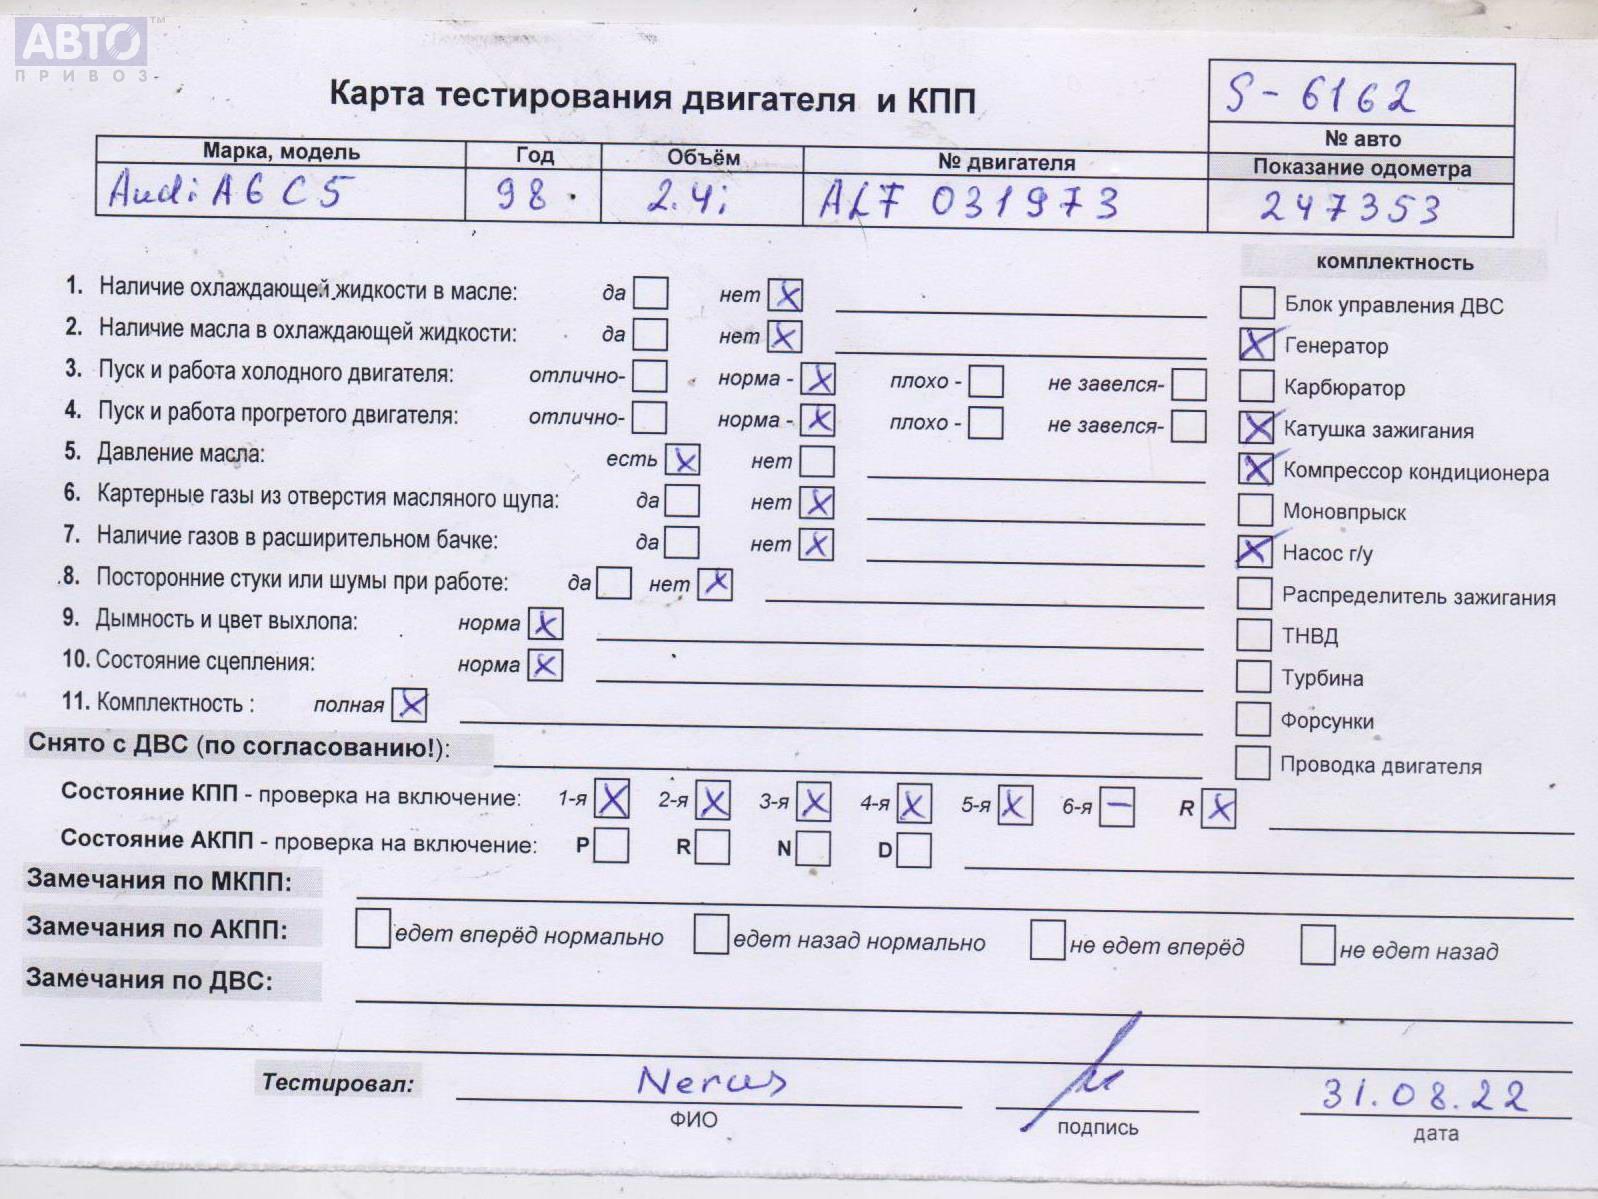 АВТО™
ПРИВОЗ
Карта тестирования двигателя и КПП
S-6162
№ авто
Марка, модель Год Объём № двигателя Показание одометра
Audi A6 C5 98. 2.4i ALF 031973 247353
комплектность
1. Наличие охлаждающей жидкости в масле: да нет X
Блок управления ДВС
2. Наличие масла в охлаждающей жидкости: да нет X
X Генератор
3. Пуск и работа холодного двигателя: отлично- норма - X плохо - не завелся-
Карбюратор
4. Пуск и работа прогретого двигателя: отлично- норма - X плохо - не завелся-
X Катушка зажигания
5. Давление масла: есть X нет
X Компрессор кондиционера
6. Картерные газы из отверстия масляного щупа: да нет X
Моновпрыск
7. Наличие газов в расширительном бачке: да нет X
X Насос г/у
8. Посторонние стуки или шумы при работе: да нет X
Распределитель зажигания
9. Дымность и цвет выхлопа: норма X
ТНВД
10. Состояние сцепления: норма X
Турбина
11. Комплектность : полная X
Форсунки
Снято с ДВС (по согласованию!):
Проводка двигателя
Состояние КПП - проверка на включение: 1-я X 2-я X 3-я X 4-я X 5-я X 6-я — R X
Состояние АКПП - проверка на включение: P R N D
Замечания по МКПП:
Замечания по АКПП: едет вперёд нормально едет назад нормально не едет вперёд не едет назад
Замечания по ДВС:
Тестировал: 31.08.22
ФИО подпись дата